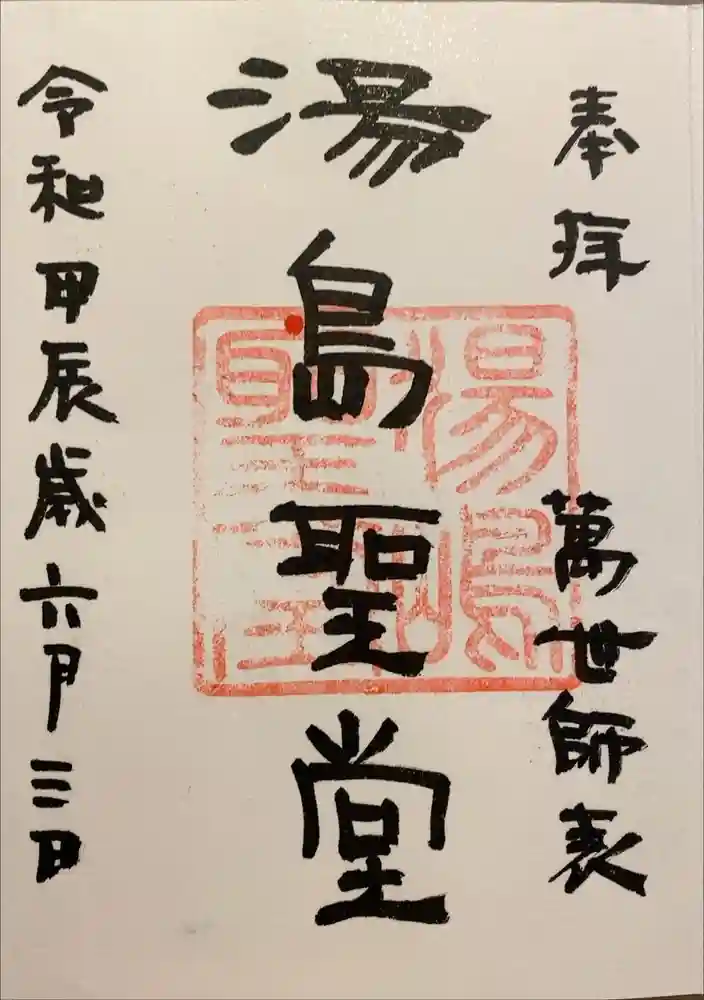 奉拝
萬世師表
湯島聖堂
湯島聖堂
令和甲辰歳六月三日